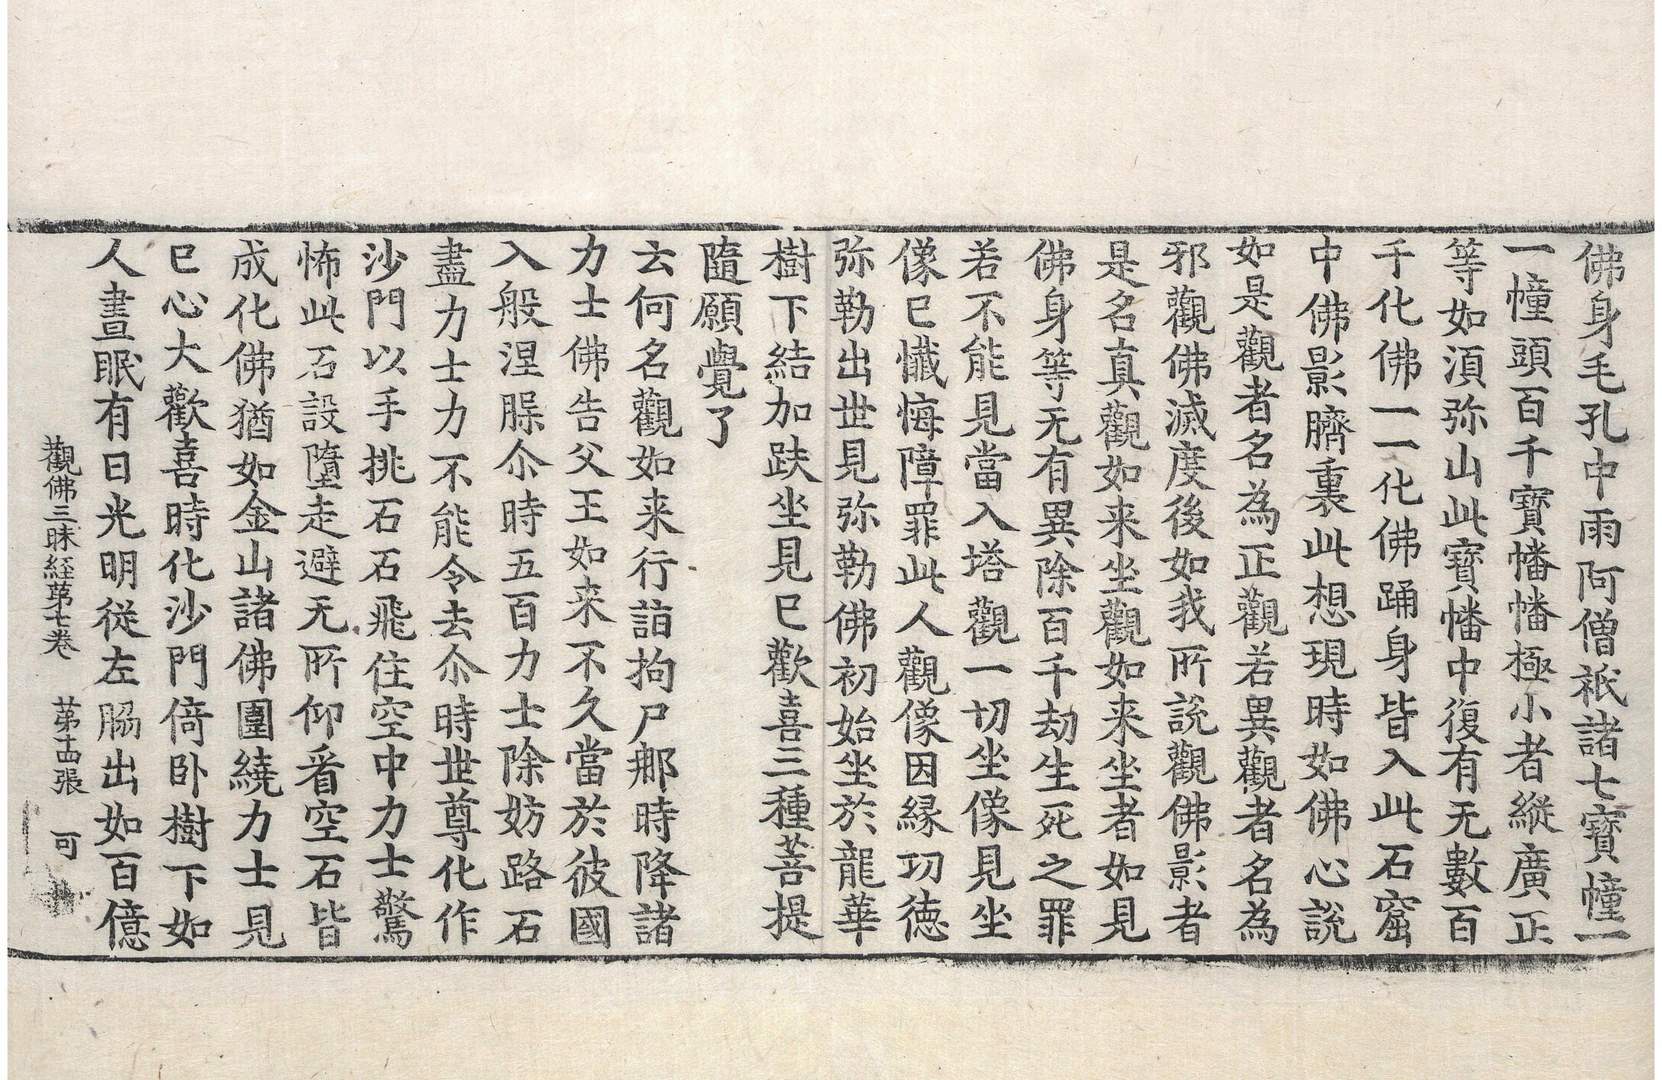 佛身毛孔中雨阿僧祇諸七寶幢一
一幢頭百千寶幡幡極小者縱廣正
等如湏弥山此寶幡中復有无數百
千化佛一一化佛踊身皆入此石窟
中佛影臍裏此想現時如佛心說
如是觀者名為正觀若異觀者名為
邪觀佛滅度後如我所說觀佛影者
是名真觀如来坐觀如来坐者如見
佛身等无有異除百千劫生死之罪
若不能見當入塔觀一切坐像見坐
像已懺悔障罪此人觀像因縁功德
弥勒出世見弥勒佛初始坐於龍華
樹下結加趺坐見已歡喜三種菩提
隨願覺了
云何名觀如来行詣拘尸那時降諸
力士佛告父王如来不久當於彼國
入般涅槃尒時五百力士除妨路石
盡力士力不能令去尒時世尊化作
沙門以手挑石石飛住空中力士驚
怖此石設墮走避无所仰看空石皆
成化佛猶如金山諸佛圍繞力士見
已心大歡喜時化沙門倚卧樹下如
人晝眠有日光明従左脇出如百億
觀佛三昧経苐七卷　苐十四張　可